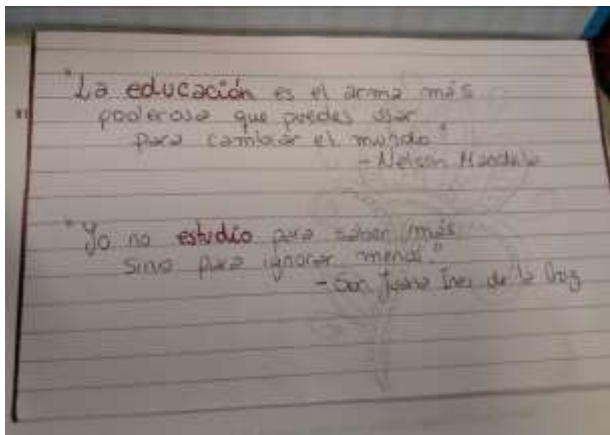 "La educación es el arma más
poderosa que puedes usar
para cambiar el mundo"
- Nelson Mandela
"Yo no estudio para saber más
sino para ignorar menos."
- Sor Juana Ines de la Cruz